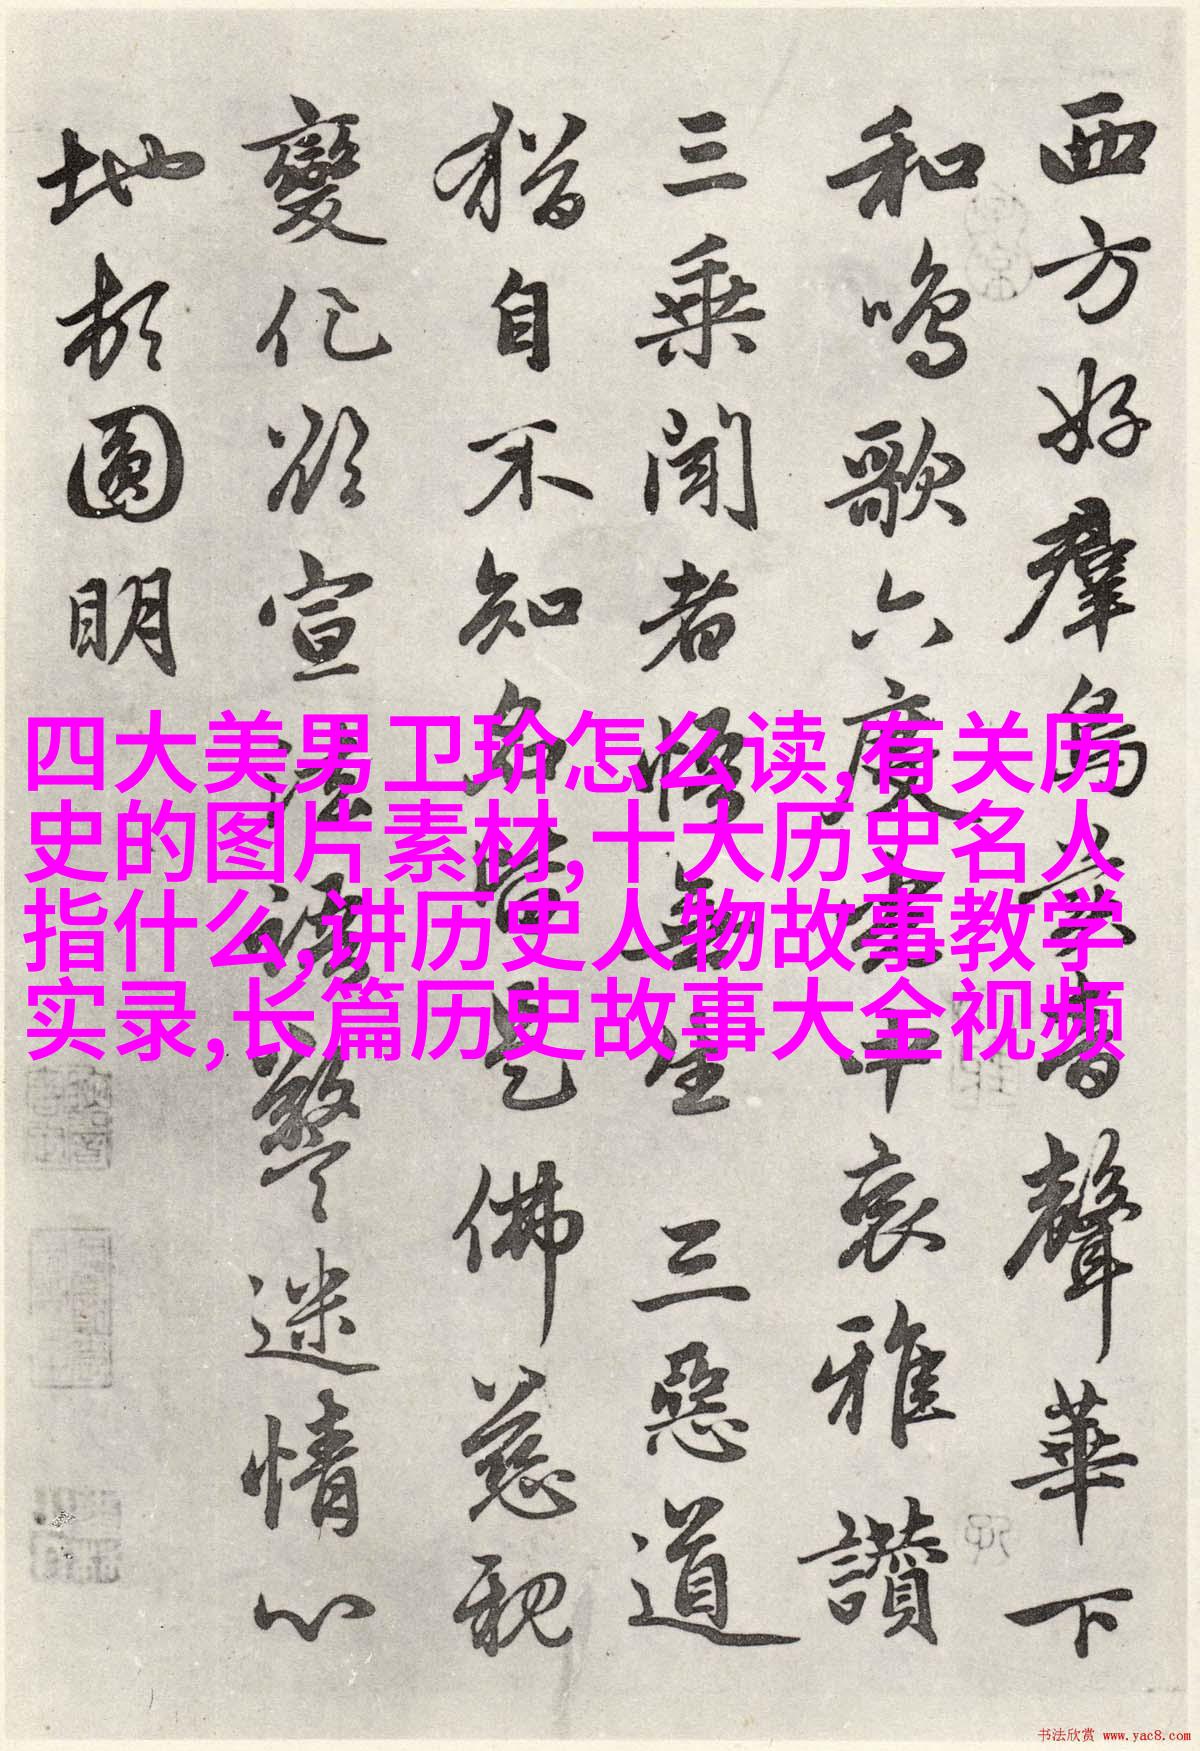 西方好羣鳥美音聲華下
和鳴歌六度光中哀雅讚
三乘聞者悟無生三惡道
猶自不知名皆是佛慈親
變化欲宣法語警迷情心
地頓圓明
四大美男卫玠怎么读,有关历
史的图片素材,十大历史名人
指什么,讲历史人物故事教学
实录,长篇历史故事大全视频
书法欣赏 www.yac8.com